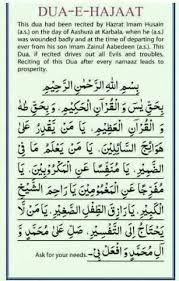 DUA-E-HAJAAT
This dua had been recited by Hazrat Imam Husain
(a.s.) on the day of Aashura at Karbala, when he (a.s.)
was wounded badly and at the time of departing for
ever from his son Imam Zainul Aabedeen (a.s.). This
Dua, if recited drives out all Evils and troubles.
Reciting of this Dua after every namaaz leads to
prosperity.
بِسْمِ اللهِ الرَّحْمٰنِ الرَّحِيْمِ
بِحَقِّ يٰسٓ وَ الْقُرْاٰنِ الْحَكِيْمِ وَ بِحَقِّ طٰهٰ
وَ الْقُرْاٰنِ الْعَظِيْمِ. يَا مَنْ يَّقْدِرُ عَلٰى
حَوَآئِجِ السَّآئِلِيْنَ. يَا مَنْ يَّعْلَمُ مَا فِى
الضَّمِيْرِ. يَا مُنَفِّسًا عَنِ الْمَكْرُوْبِيْنَ. يَا
مُفَرِّجًا عَنِ الْمَغْمُوْمِيْنَ. يَا رَاحِمَ الشَّيْخِ
الْكَبِيْرِ. يَا رَازِقَ الطِّفْلِ الصَّغِيْرِ. يَا مَنْ لَّا
يَحْتَاجُ اِلَى التَّفْسِيْرِ. صَلِّ عَلٰى مُحَمَّدٍ وَّ
اٰلِ مُحَمَّدٍ وَّ افْعَلْ بِيْ– Ask for your needs.